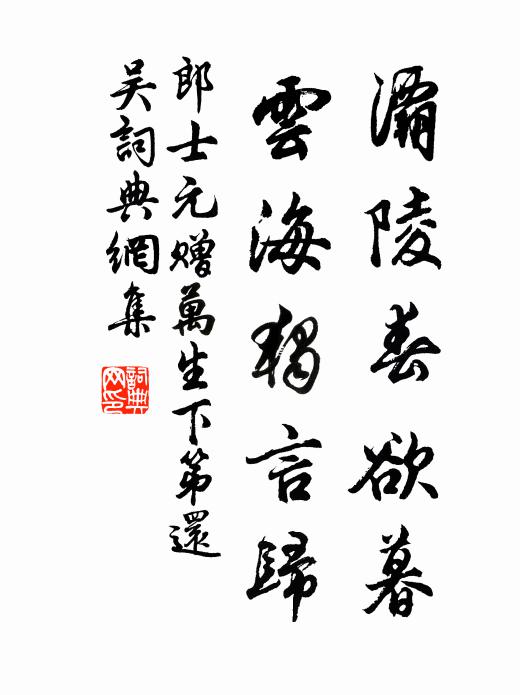 灞陵春欲暮
雲海獨言歸
郎士元贈萬生下第還
吳詞典網集
詞典
网印